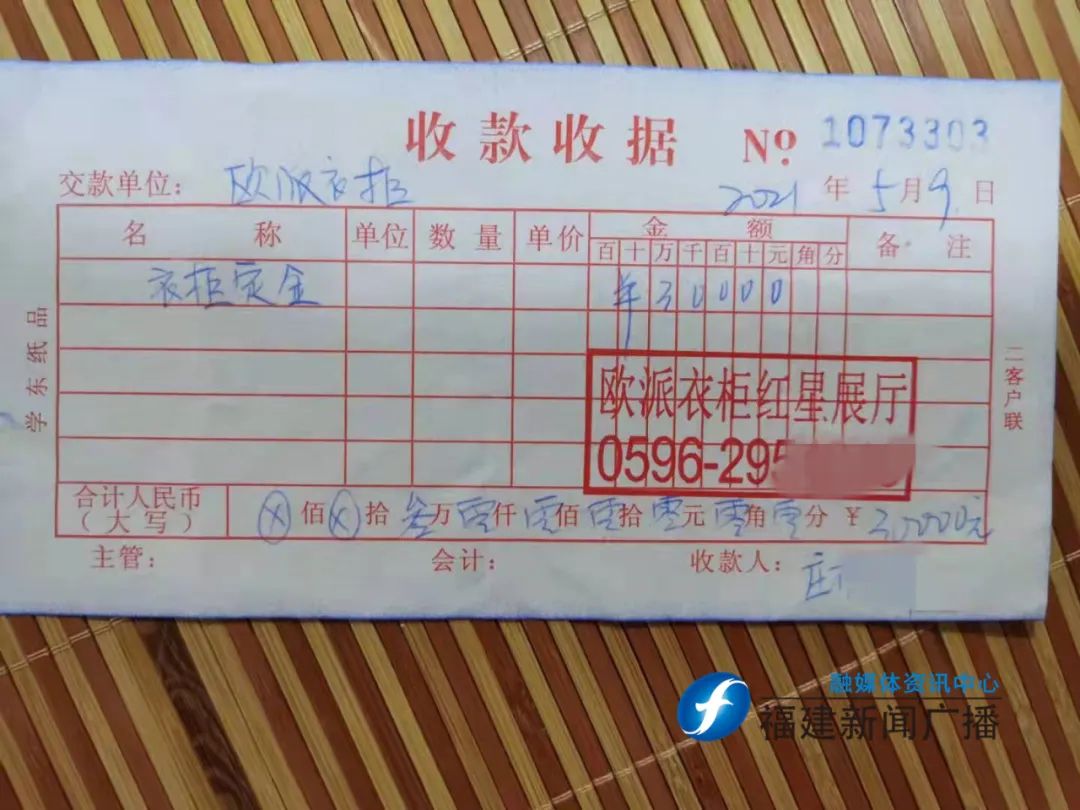 收款收据 No. 1073303
交款单位: 欧派衣柜 2021 年 5 月 9 日
名称 单位 数量 单价 金额 备注
百 十 万 千 百 十 元 角 分
衣柜定金 ¥ 30000
欧派衣柜红星展厅
0596-295
合计人民币
(大写)
ⓧ 佰 ⓧ 拾 叁 万 零 仟 零 佰 零 拾 零 元 零 角 零 分 ¥ 30000元
主管: 会计: 收款人: 庄
学东纸品
二客户联
融媒体资讯中心
福建新闻广播